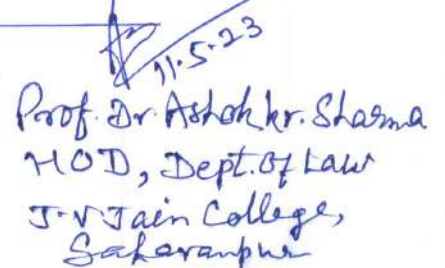 11.5.23
Prof. Dr. Ashok kr. Sharma
HOD, Dept. of Law
J.V Jain College,
Saharanpur